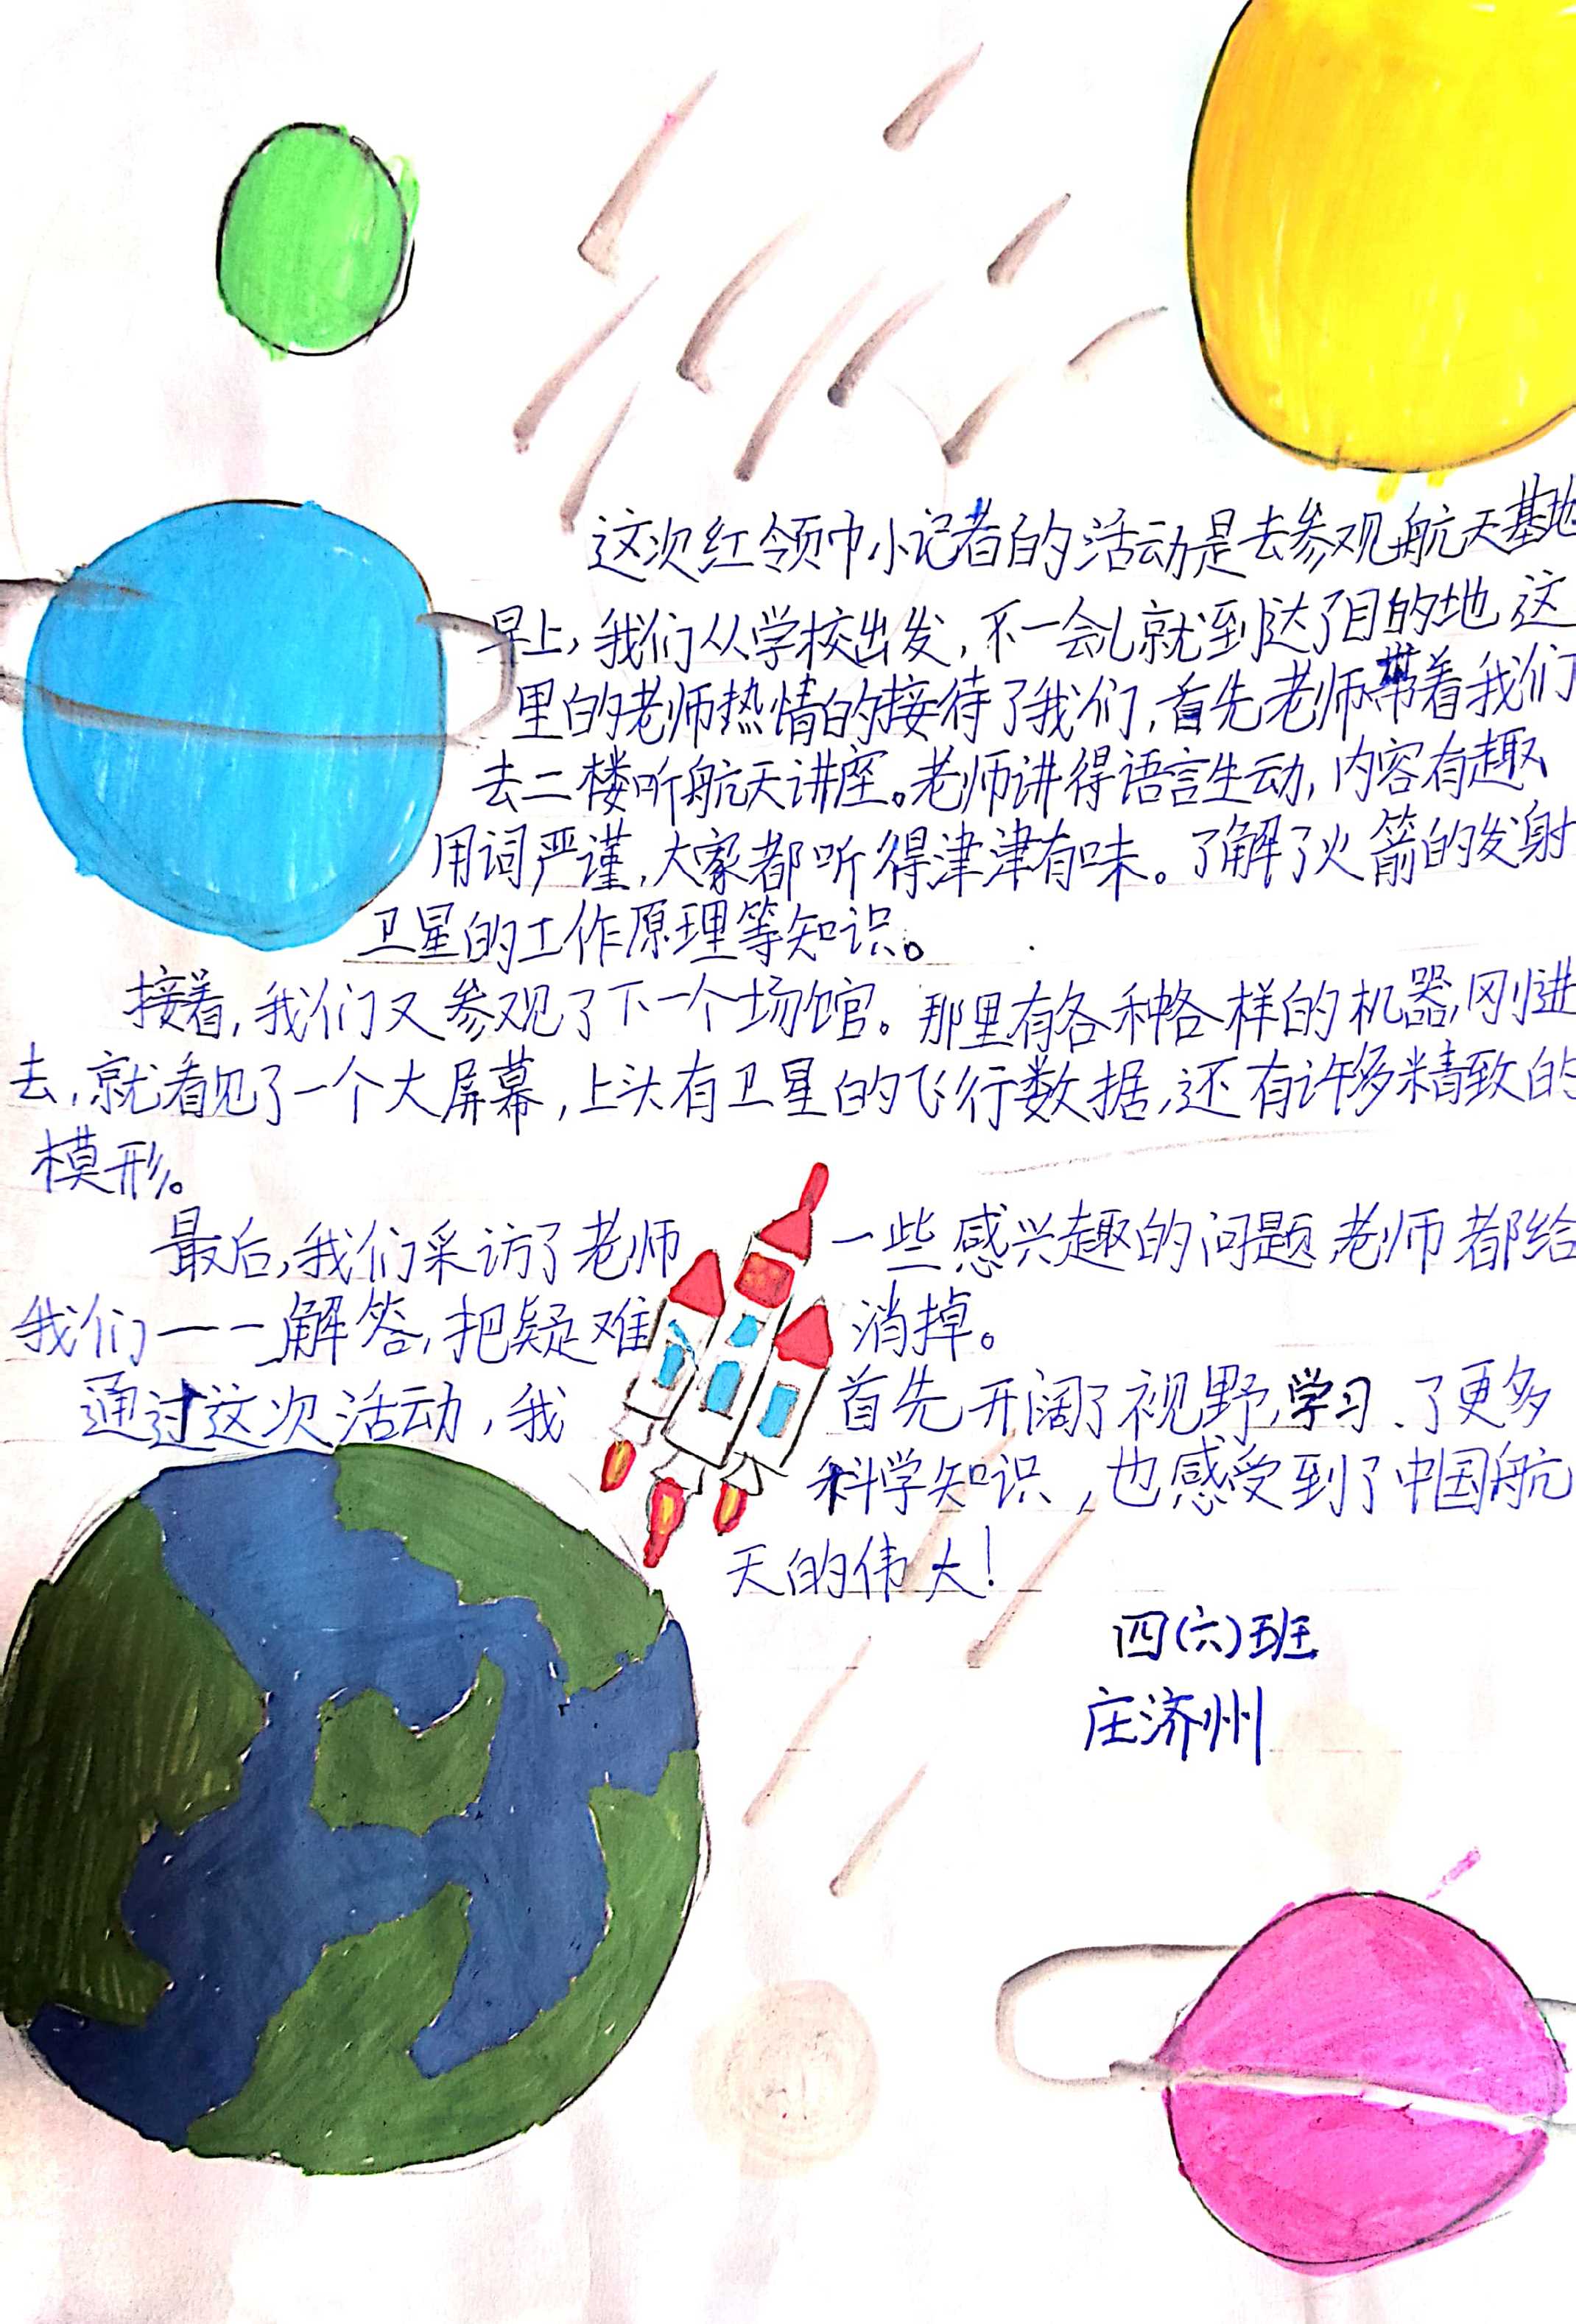 这次红领巾小记者的活动是去参观航天基地
早上，我们从学校出发，不一会儿就到达了目的地 这
里的老师热情的接待了我们，首先老师带着我们
去二楼听航天讲座。老师讲得语言生动，内容有趣
用词严谨，大家都听得津津有味。了解了火箭的发射
卫星的工作原理等知识。
接着，我们又参观了下一个场馆。那里有各种各样的机器，刚进
去，就看见了一个大屏幕，上头有卫星的飞行数据，还有许多精致的
模形。
最后，我们采访了老师 一些感兴趣的问题 老师都给
我们一一解答，把疑难 消掉。
通过这次活动，我 首先开阔了视野，学习、了更多
科学知识，也感受到了中国航
天的伟大！
四(六)班
庄济州